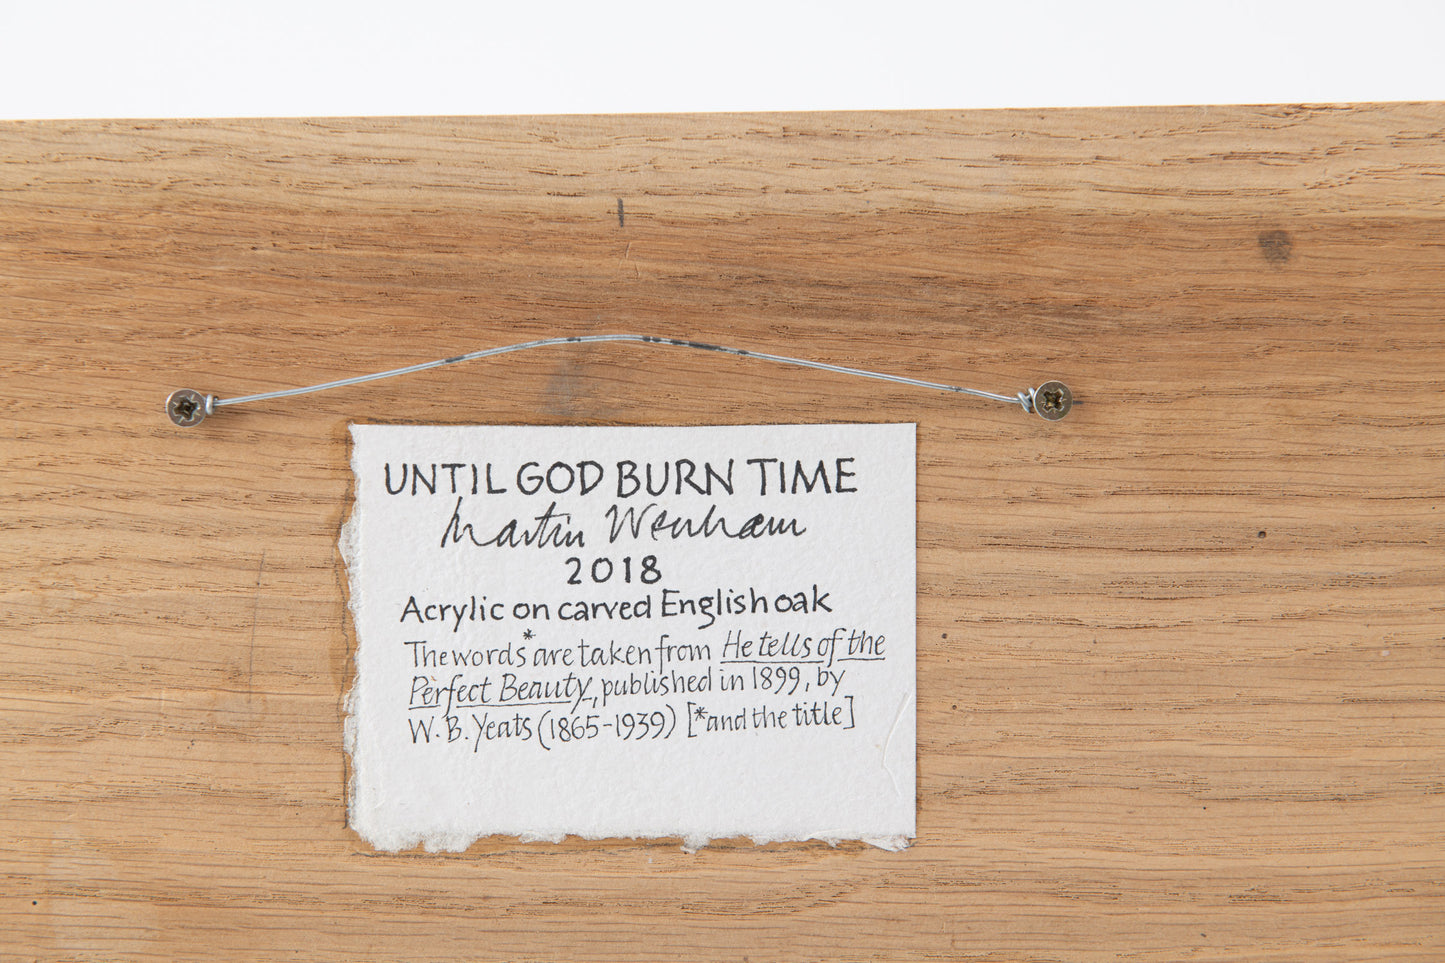 UNTIL GOD BURN TIME
Martin Wenham
2018
Acrylic on carved English oak
The words* are taken from He tells of the
Perfect Beauty, published in 1899, by
W. B. Yeats (1865-1939) [*and the title]